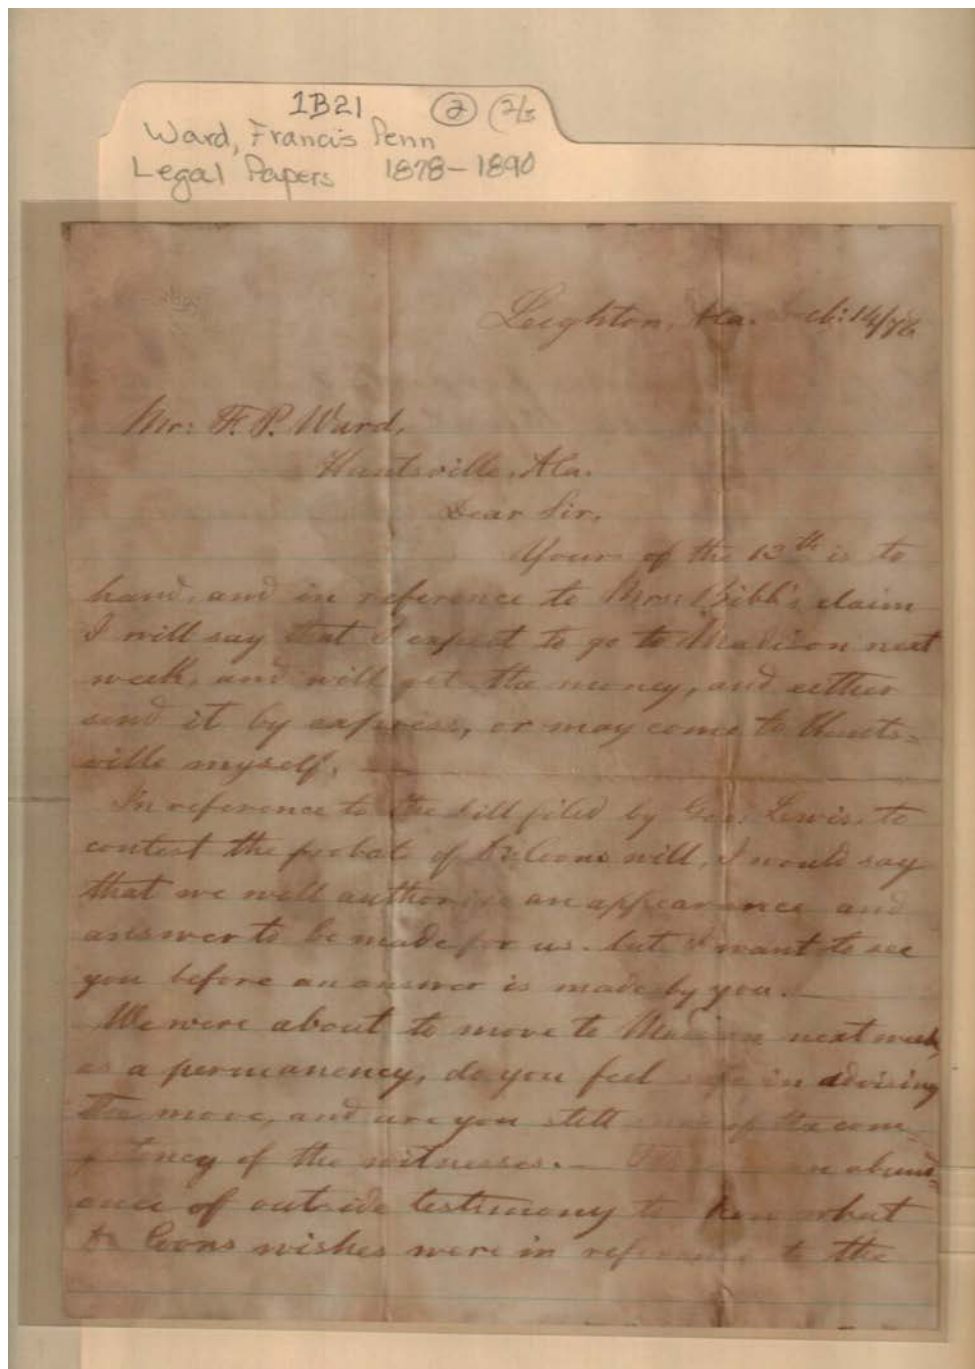 1B21 2 (2/3
Ward, Francis Penn
Legal Papers 1878-1890
Leighton, Ala. 14/78
Mr: F. P. Ward,
Huntsville, Ala.
Dear Sir,
Yours of the 13th is to
hand, and in reference to Mrs: Bibb's claim
I will say that I expect to go to Madison next
week, and will get the money, and either
send it by express, or may come to Hunts=
ville myself.
In reference to the bill filed by Geo. Lewis, to
contest the probate of Dr. Coons will, I would say
that we will authorize an appearance and
answer to be made for us. but I want to see
you before an answer is made by you.
We were about to move to Madison next week,
as a permanency, do you feel safe in advising
the move, and are you still of the com-
petency of the witnesses. — an abund-
ance of outside testimony to what
Dr Coons wishes were in reference to the